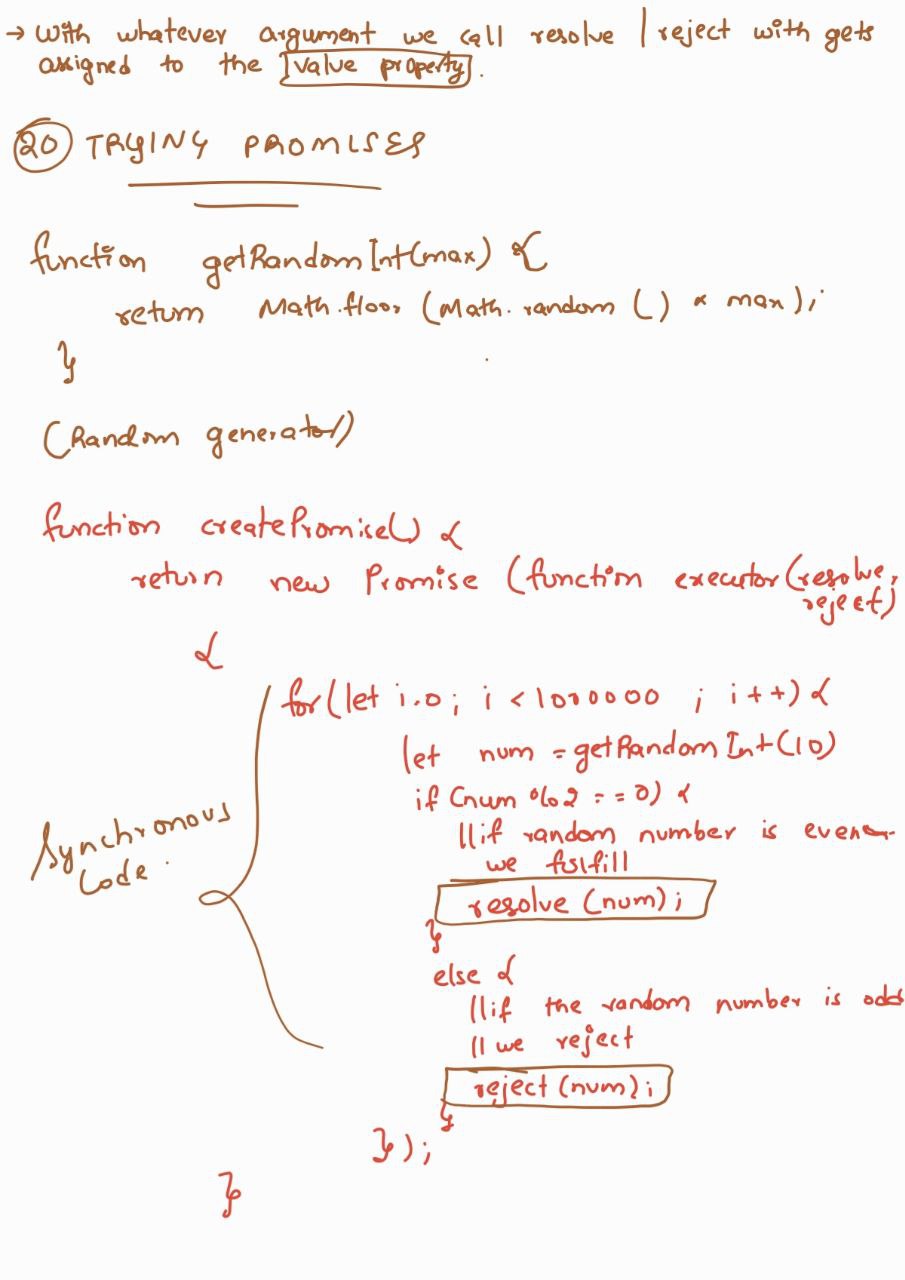 → With whatever argument we call resolve / reject with gets
assigned to the [value property].
20 TRYING PROMISES
function getRandomInt(max) {
return Math.floor (Math.random () * max);
}
(Random generator)
function createPromise() {
return new Promise (function executor(resolve,
reject)
{
for(let i=0; i<1000000 ; i++) {
let num = getRandomInt(10)
if (num %2 == 0) {
//if random number is even
we fulfill
resolve (num);
}
else {
//if the random number is odd
// we reject
reject (num);
}
});
}
Synchronous
Code.